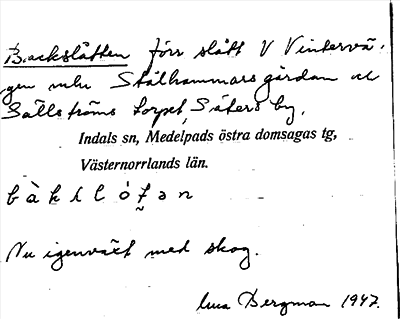 Backslåtten förr slått V Vintervä-
gen mellan Stålhammarsgården och
Sällströms torpet, Säters by.
Indals sn, Medelpads östra domsagas tg,
Västernorrlands län.
Nu igenväxt med skog.
Bergman 1947.